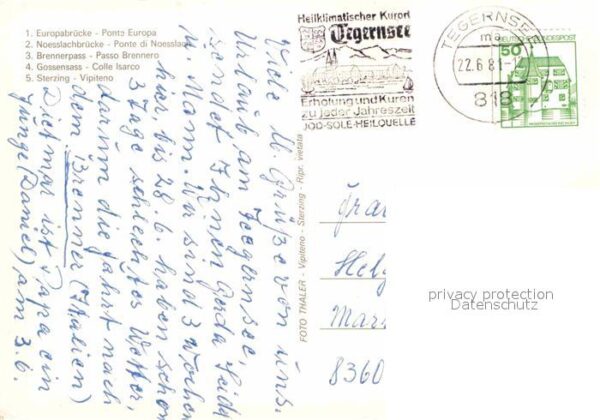 1. Europabrücke - Ponte Europa
2. Noesslachbrücke - Ponte di Noesslach
3. Brennerpass - Passo Brennero
4. Gossensass - Colle Isarco
5. Sterzing - Vipiteno
Heilklimatischer Kurort
Tegernsee
Erholung und Kuren
zu jeder Jahreszeit
JOD-SOLE-HEILQUELLE
TEGERNSEE
22.6.81
818
DEUTSCHE BUNDESPOST
50
Viele lb. Grüße von uns.
Urlaub am Tegernsee,
sendet Ihnen Gerda
u. Mann. Wir sind 3 Wochen
hier bis 28.6. haben schon
3 Tage schlechtes Wetter,
darum die Fahrt nach
dem Brenner (Italien)
Dietmar ist Papa ein
Junge (Daniel) am 3.6.
FOTO THALER - Vipiteno - Sterzing - Ripr. vietata
Frau
Helg
Mar
8360
privacy protection
Datenschutz